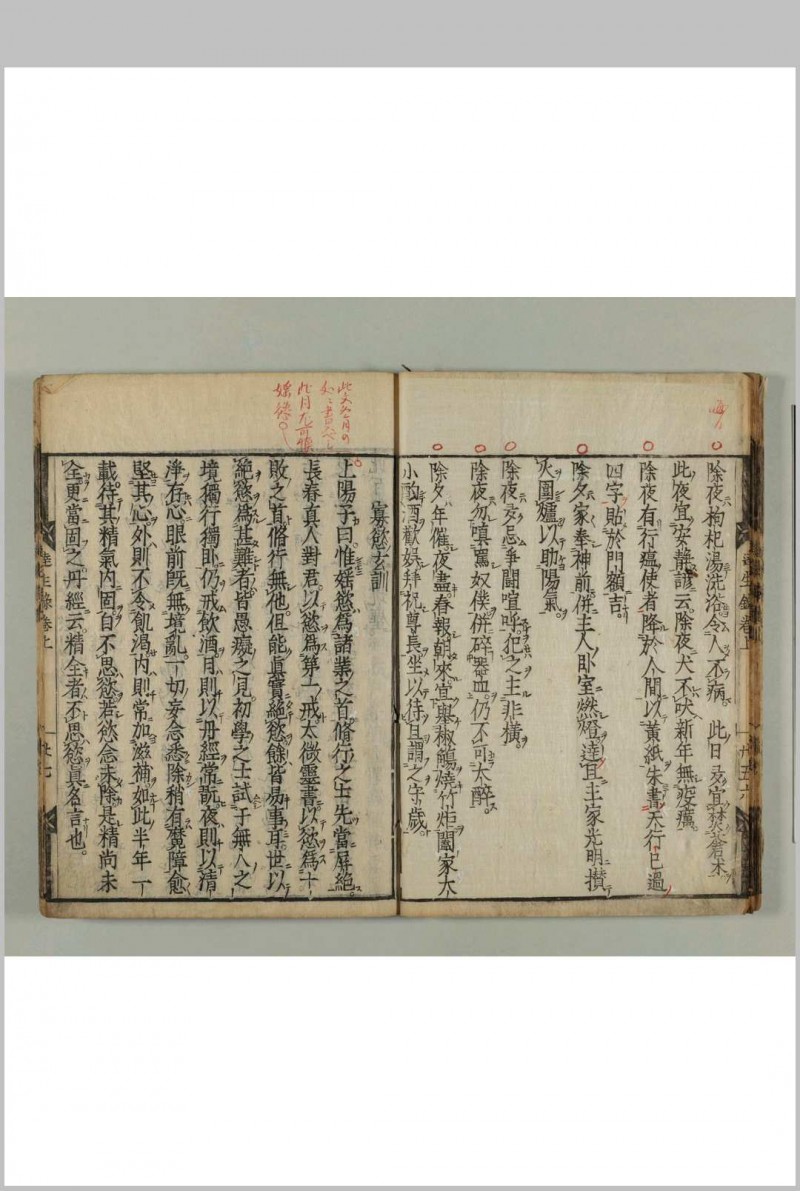 除夜枸杞湯洗浴令人不病。 此日又宜焚蒼朮
此夜宜安靜諺云除夜犬不吠新年無疫癘。
除夜有行瘟使者降於人間以黃紙朱書天行已過
四字貼於門額吉。
除夕家奉神前併主人臥室燃燈達旦主家光明攅
火圍爐以助陽氣。
除夜又忌爭鬪喧呼犯之主非橫。
除夜勿嗔罵奴僕併碎器皿仍不可大醉。
除夕年催夜盡春報朝來宜舉椒觴燒竹炬闔家大
小酌酒歡娛拜祝尊長坐以待旦謂之守歲。
達生錄卷上
寡慾玄訓
上陽子曰惟婬慾爲諸業之首脩行之士先當屏絶。
長春眞人對君以慾爲第一戒太微靈書以慾爲十
敗之首脩行無他但能眞實絶慾餘皆易事耳世以
絕慾爲甚難者皆愚癡之見初學之士試于無人之
境獨行獨臥仍戒飲酒日則以丹經常翫夜則以清
淨存心眼前旣無境亂一切妄念悉除稍有魔障愈
堅其心外則不令飢渴內則常加滋補如此半年一
載待其精氣內固自不思慾若慾念未除是精尚未
全更當固之丹經云精全者不思慾眞名言也。
達生錄卷上